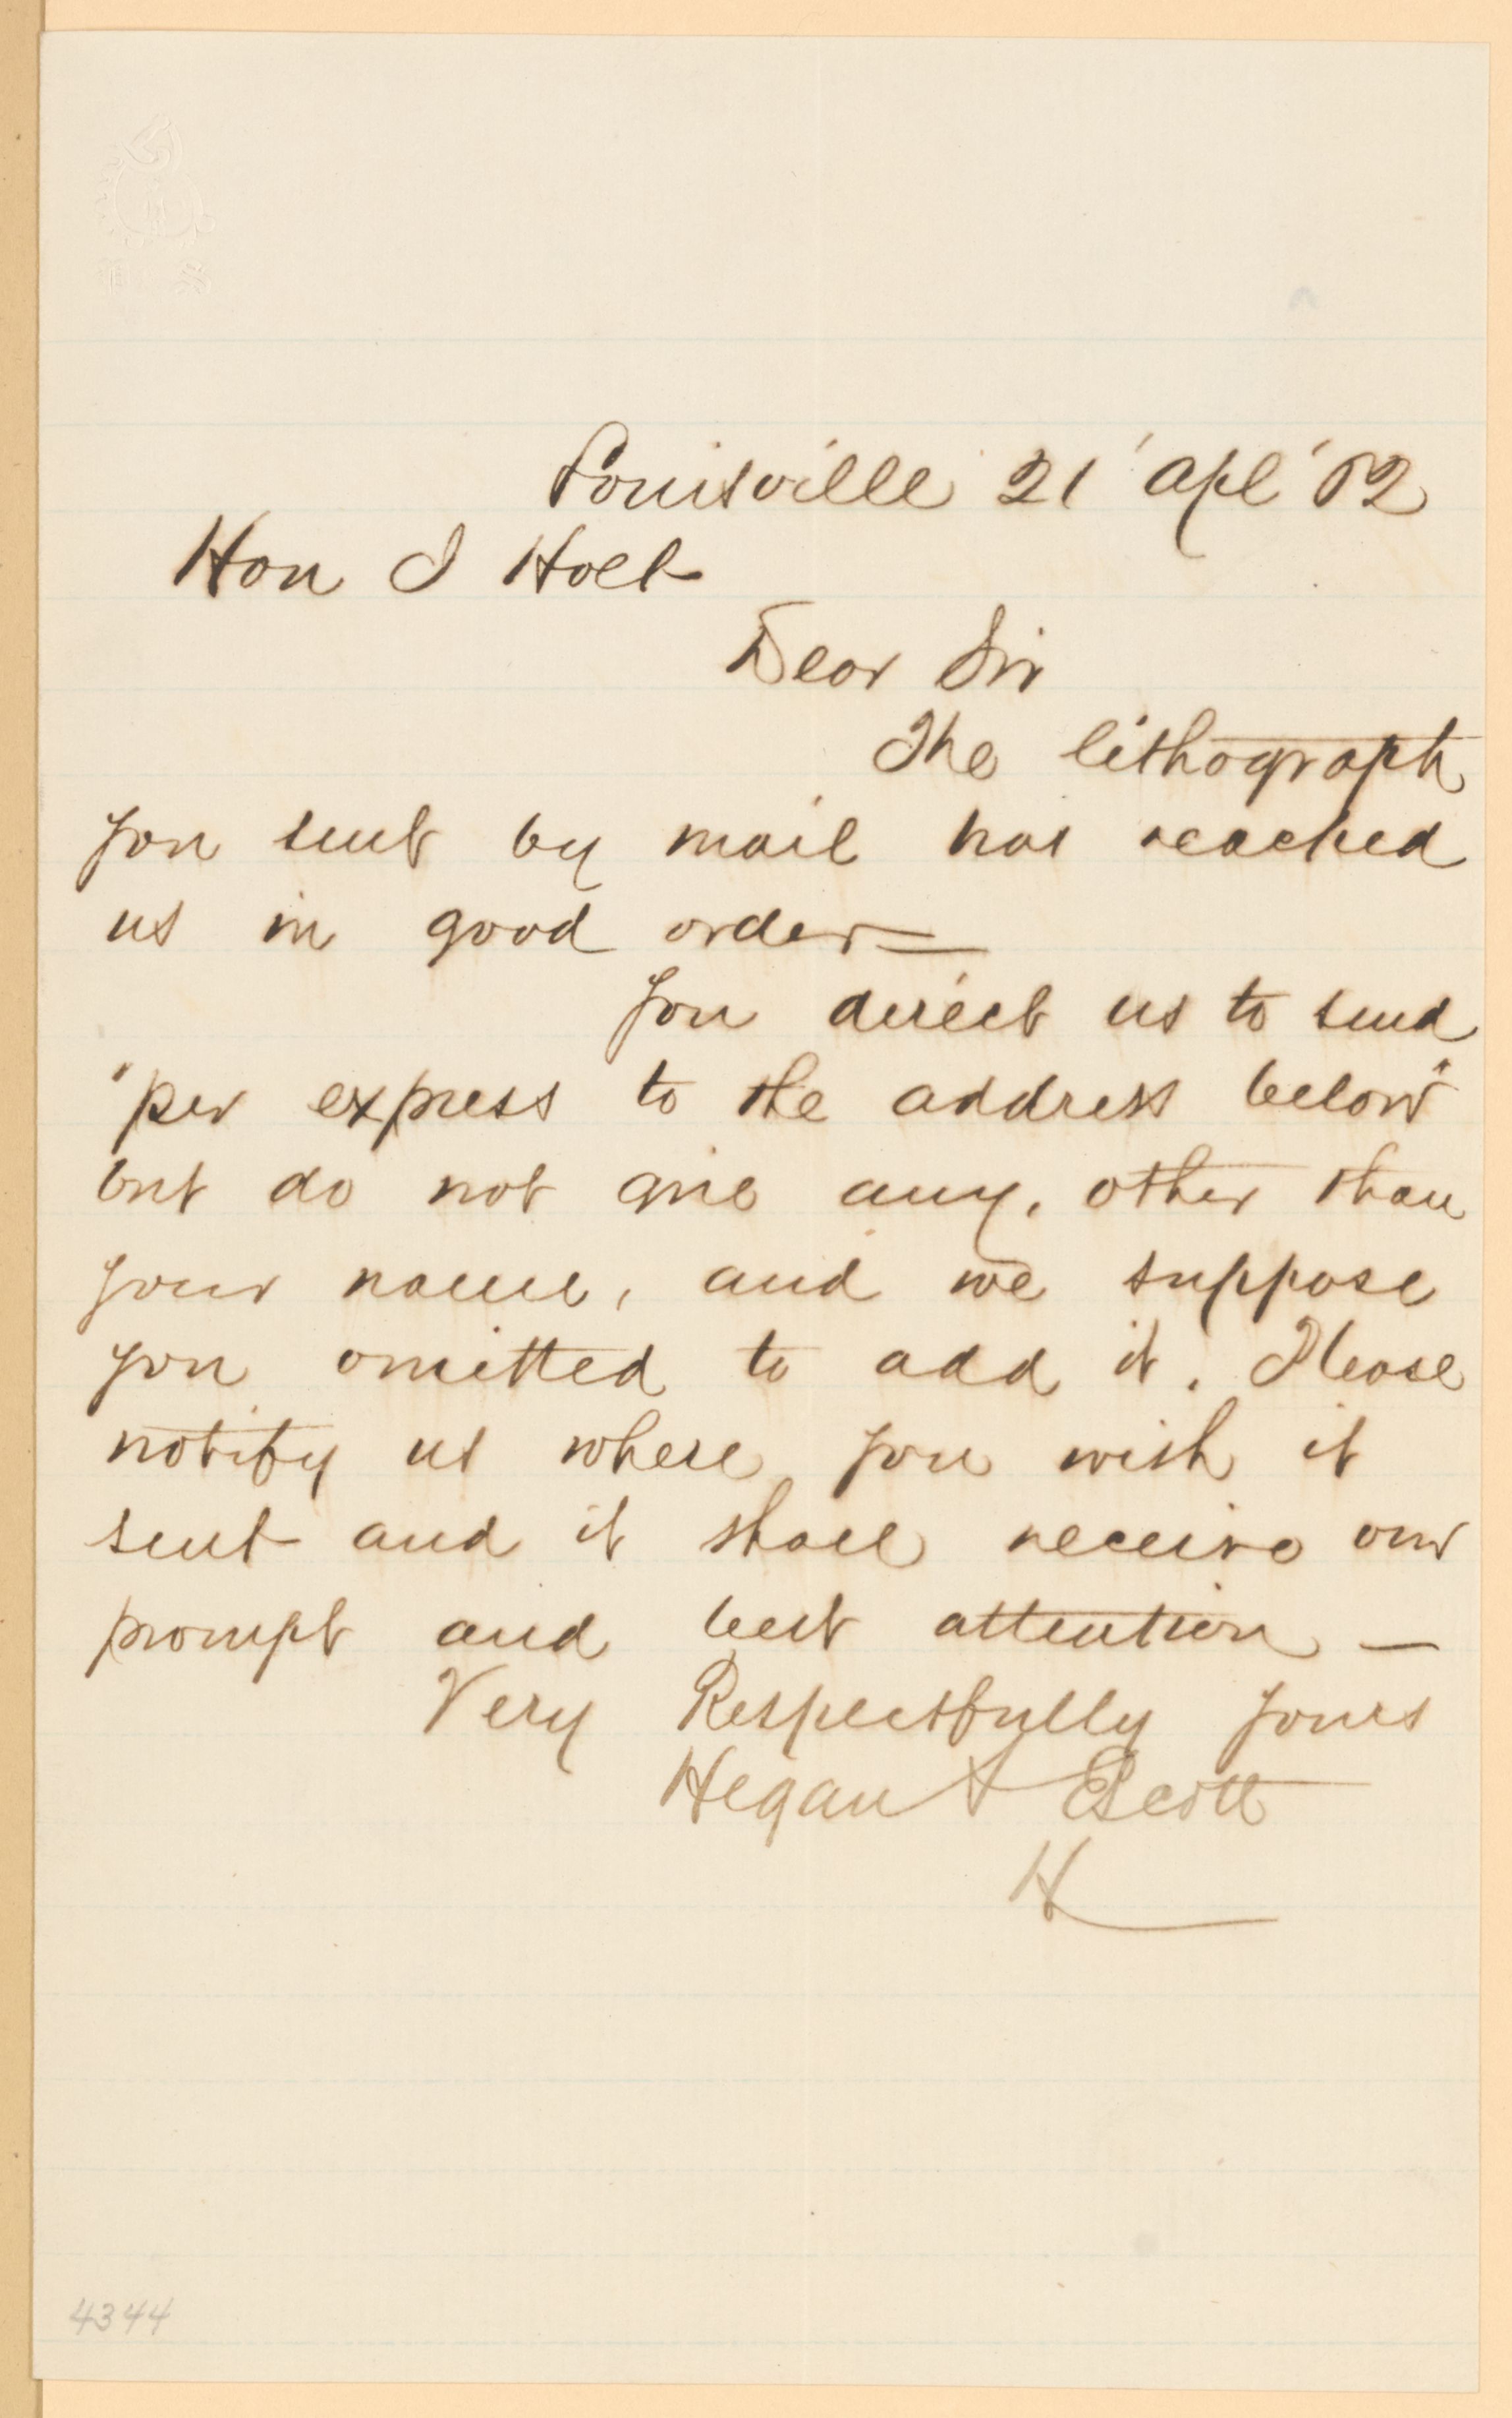 Louisville 21 'Apl '62
Hon J Holt
Dear Sir
The lithograph
you sent by mail has reached
us in good order —
You direct us to send
"per express to the address below"
but do not give any, other than
your name, and we suppose
you omitted to add it. Please
notify us where you wish it
sent and it shall receive our
prompt and best attention —
Very Respectfully yours
Hegan & Escott
H
4344